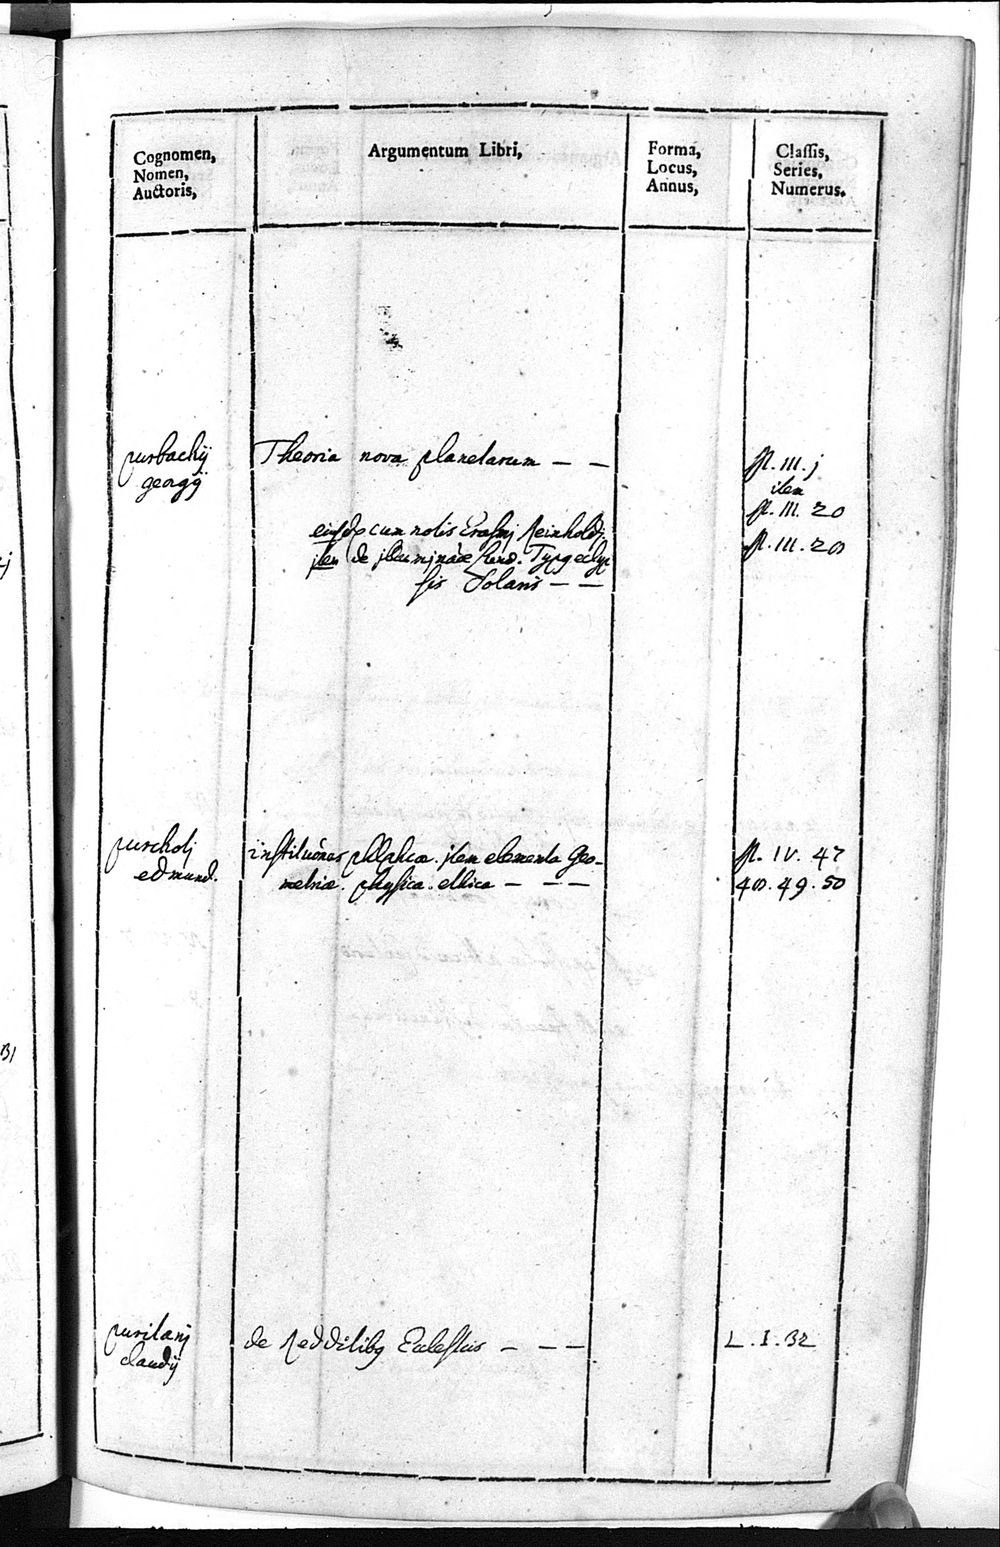 Cognomen,
Nomen,
Auctoris,
Argumentum Libri,
Forma,
Locus,
Annus,
Classis,
Series,
Numerus.
purbachij
georgij
Theoria nova planetarum — —
III. j
item
III. 20
cum notis Erasmj Reinholdj
III. 20
item de
sis Solaris — —
purchotj
edmund.
institutiones item elementa Geo-
metriæ. physica. ethica — — —
IV. 47
49. 50
purilanj
claudij
de Redditibq Eccles — — —
L. I. 32